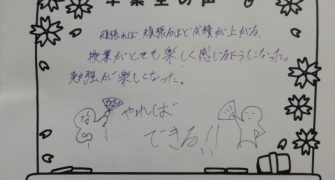 卒業生の声
頑張れば 頑張るほど成績が上がる、
授業がとても楽しく感じるようになった。
勉強が楽しくなった。
やれば
できる!!